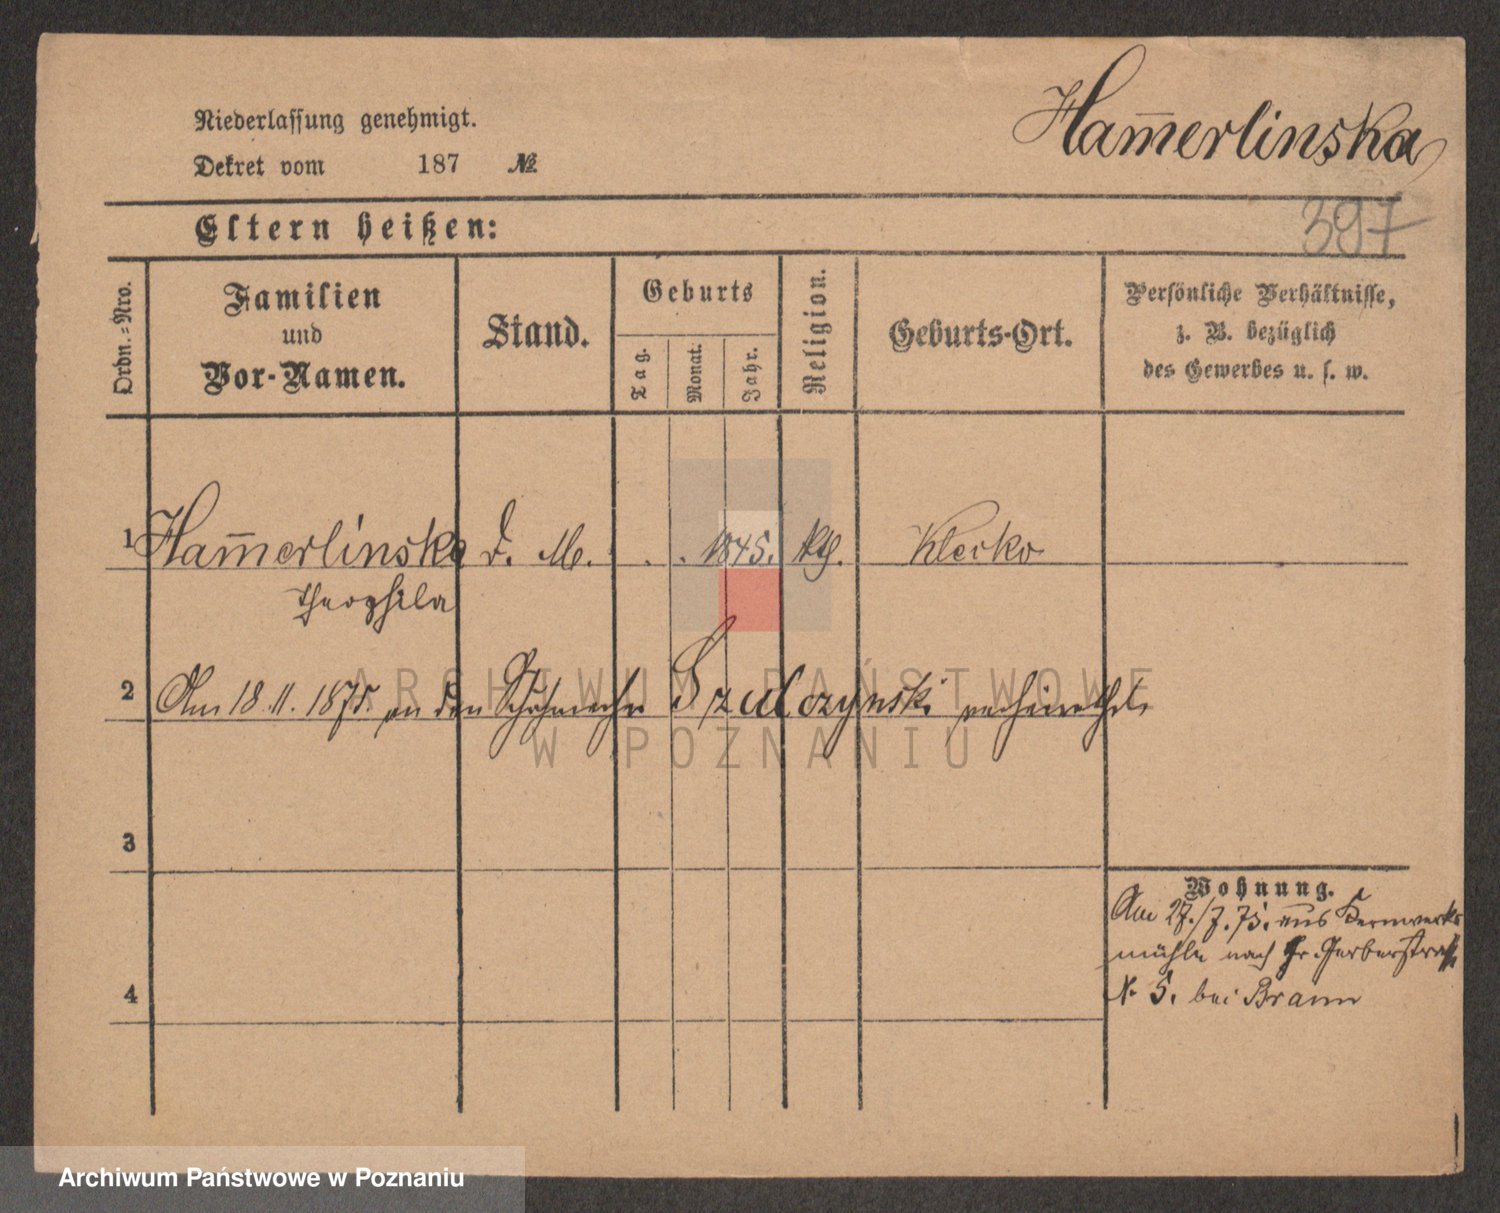 Ham̅erlinska
Niederlassung genehmigt.
Dekret vom 187 №
397
Eltern heißen:
Ordn.-Nro.
Familien
und
Vor-Namen.
Stand.
Geburts
Tag.
Monat.
Jahr.
Religion.
Geburts-Ort.
Persönliche Verhältnisse,
z. B. bezüglich
des Gewerbes u. s. w.
1 Ham̅erlinska D. M. . . 1845. kth. Klecko
Theophila
2 Am 18.11.1875. an den Schuhmacher Szulczynski verheirathet.
3
Wohnung.
Am 27./7.75. aus Kernwerks
mühle nach Gr. Gerberstraße
N. 5. bei Braun
4
ARCHIWUM PAŃSTWOWE
W POZNANIU
Archiwum Państwowe w Poznaniu